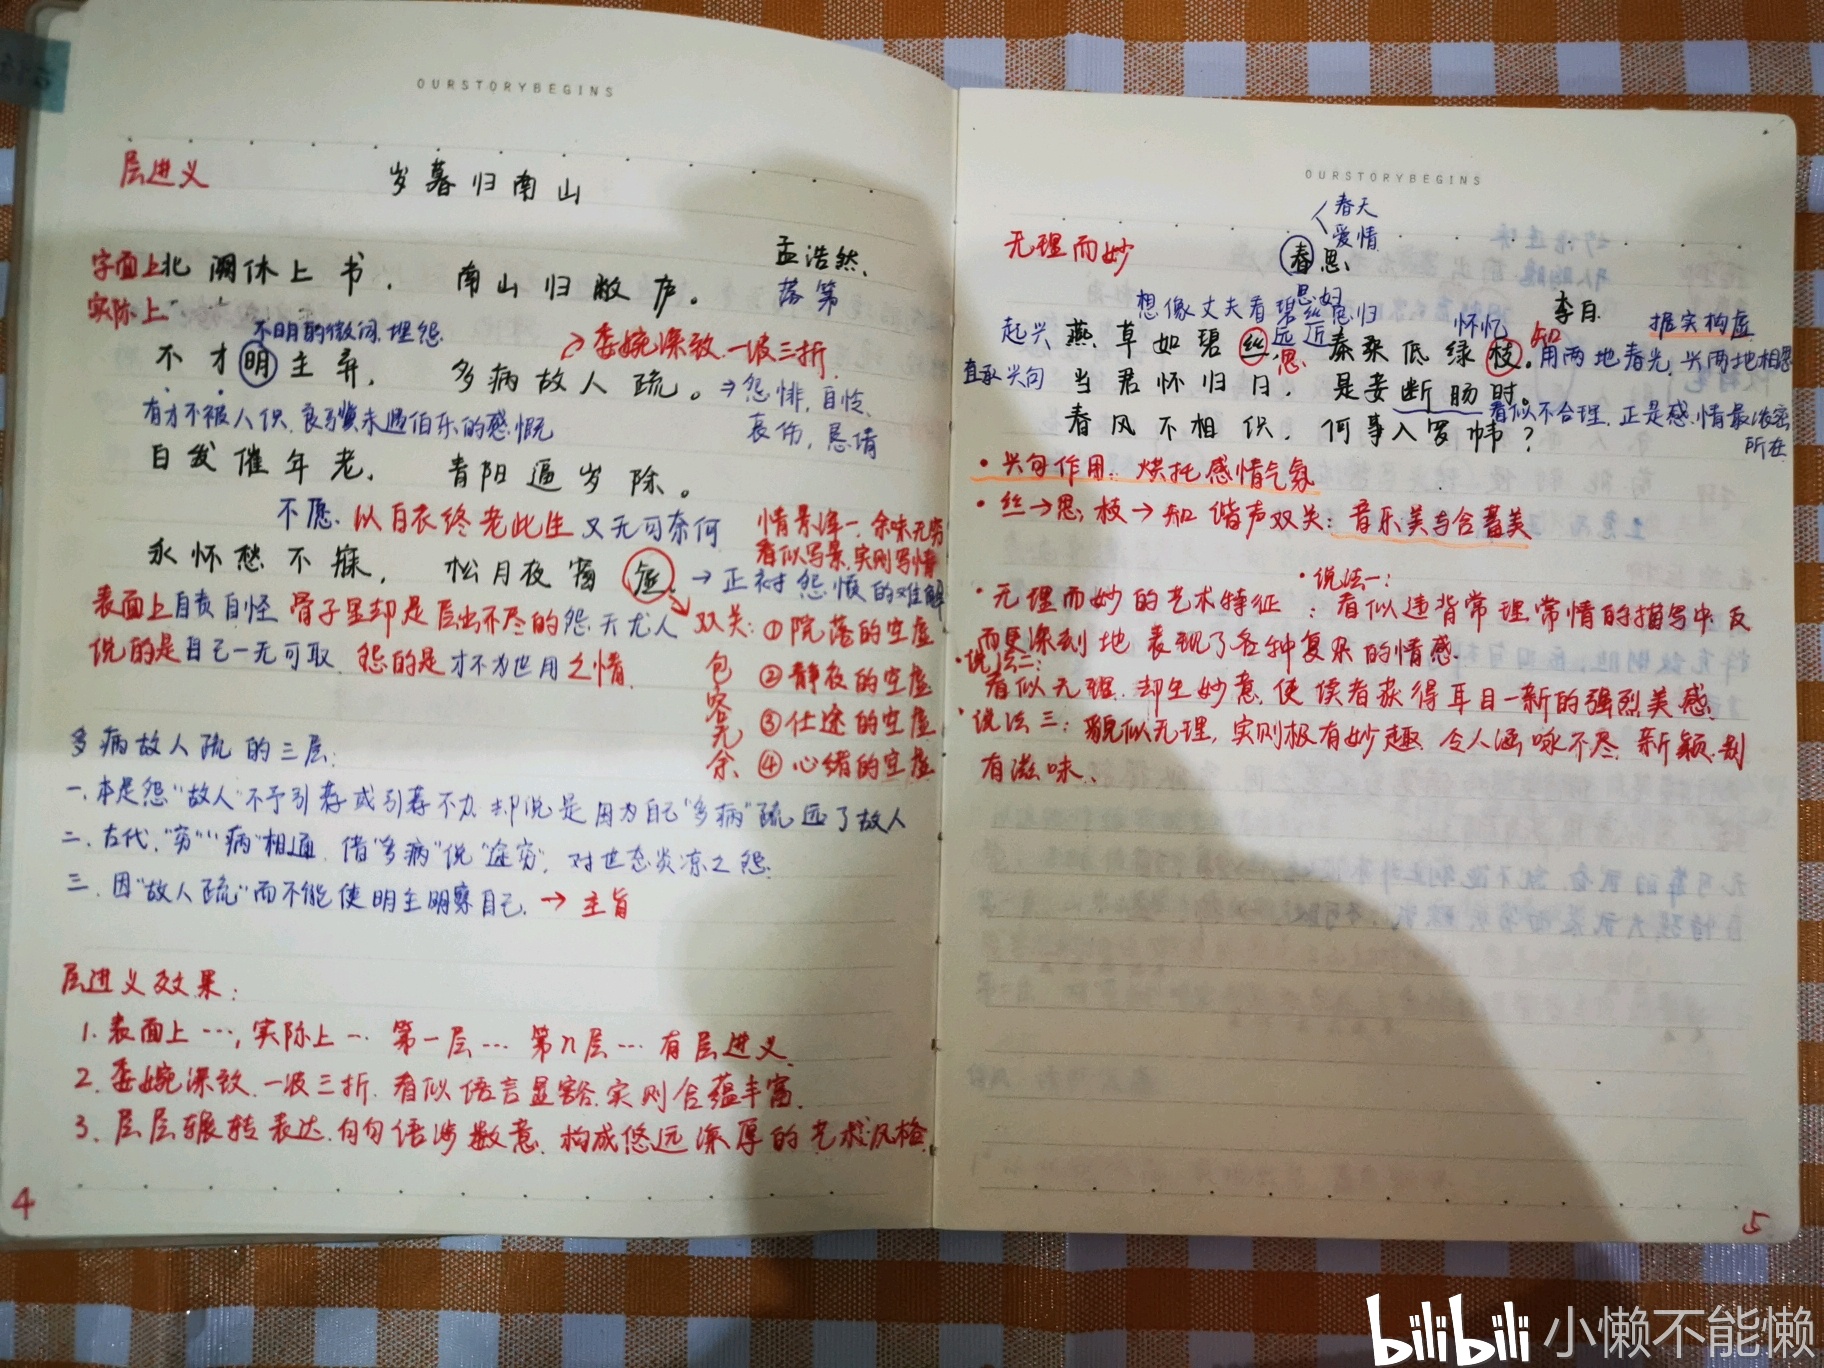 OURSTORYBEGINS
层进义
岁暮归南山
孟浩然、
落第
字面上
实际上
北阙休上书，南山归敝庐。
不明的微词，埋怨
委婉深致，一波三折
不才明主弃，多病故人疏。
→怨悱，自怜，
哀伤，恳请
有才不被人识，良骥未遇伯乐的感慨
白发催年老，青阳逼岁除。
不愿以白衣终老此生又无可奈何
情景浑一，余味无穷
看似写景，实则写情
永怀愁不寐，松月夜窗虚
→正衬怨愤的难解
表面上自责自怪 骨子里却是层出不尽的怨天尤人
说的是自己一无可取，怨的是才不为世用之情
双关：①院落的空虚
②静夜的空虚
③仕途的空虚
④心绪的空虚
包容无余
多病故人疏的三层：
一、本是怨“故人”不予引荐或引荐不力 却说是因为自己“多病”疏远了故人
二、古代，“穷”“病”相通，借“多病”说“途穷”，对世态炎凉之怨
三、因“故人疏”而不能使明主明察自己 → 主旨
层进义效果：
1. 表面上…，实际上… 第一层… 第n层… 有层进义
2. 委婉深致，一波三折，看似语言显豁，实则含蕴丰富
3. 层层辗转表达，句句语涉数意，构成悠远深厚的艺术风格
4
OURSTORYBEGINS
无理而妙
春天
爱情
春思
李白
想像丈夫看碧丝思归
思妇
起兴
燕草如碧丝，秦桑低绿枝。
远 近
思
怀忆
知
据实构虚
用两地春光，兴两地相思
直承兴句
当君怀归日，是妾断肠时。
看似不合理，正是感情最浓密
所在
春风不相识，何事入罗帏？
·兴句作用：烘托感情气氛
·丝→思，枝→知 谐声双关：音乐美与含蓄美
·无理而妙的艺术特征：
·说法一：
看似违背常理常情的描写中反
而更深刻地表现了各种复杂的情感
·说法二：
看似无理，却生妙意，使读者获得耳目一新的强烈美感
·说法三：貌似无理，实则极有妙趣，令人涵咏不尽，新颖别
有滋味、
5
bilibili 小懒不能懒